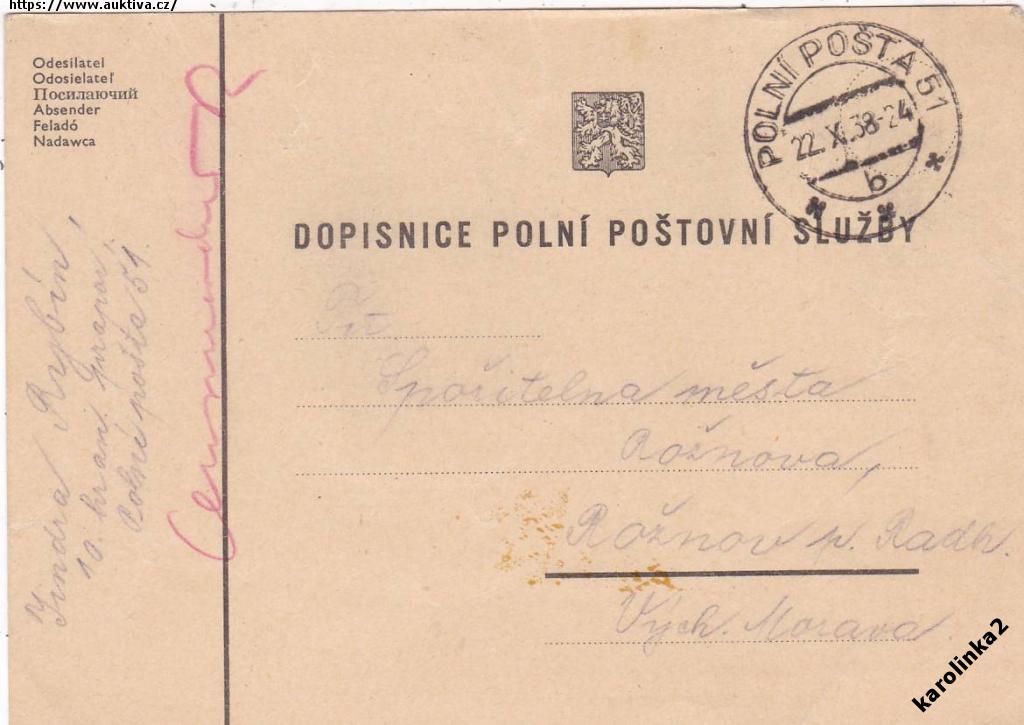 https://www.auktiva.cz/
Odesílatel
Odosielateľ
Посилаючий
Absender
Feladó
Nadawca
POLNÍ POŠTA 51
22. XI. 38-24
b
DOPISNICE POLNÍ POŠTOVNÍ SLUŽBY
Spořitelna města
Rožnova,
Rožnov p. Radh.
Vých. Morava
Jindra Rybín,
10. hran. prapor,
Polní pošta 51.
karolinka2